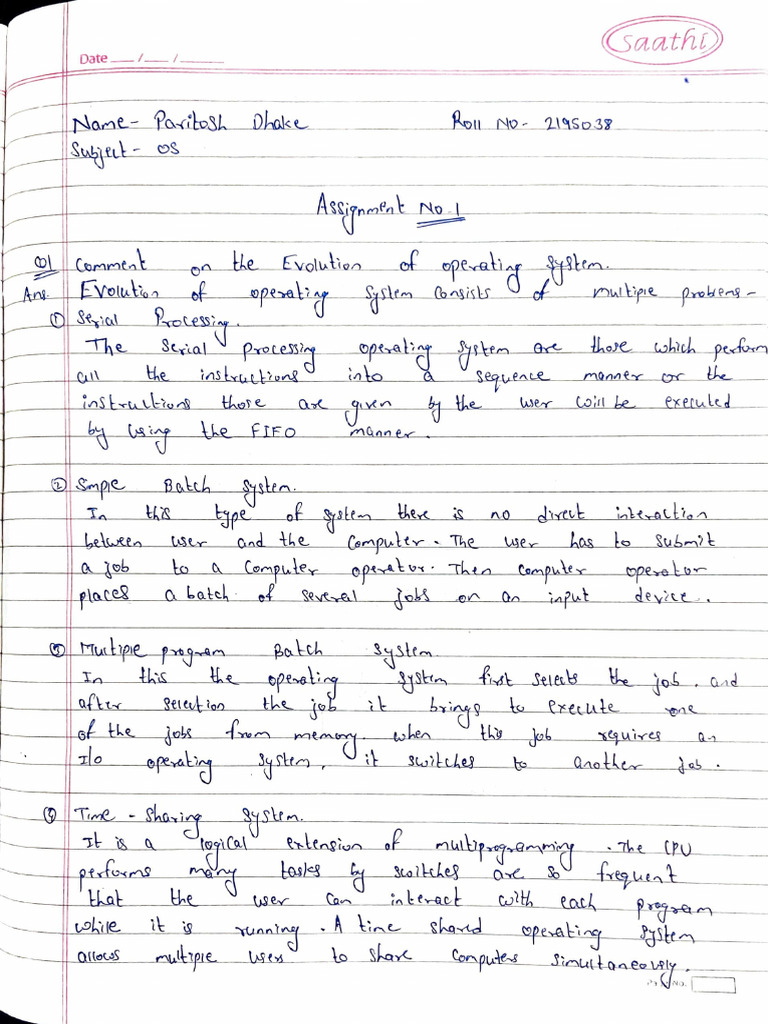 Saathi
Date ___/___/_____
Name- Paritosh Dhake Roll NO- 2195038
Subject- OS
Assignment No.1
Q1 Comment on the Evolution of operating system.
Ans. Evolution of operating system consists of multiple problems-
① Serial Processing.
The serial processing operating system are those which perform
all the instructions into a sequence manner or the
instructions those are given by the user will be executed
by using the FIFO manner.
② Smple Batch system.
In this type of system there is no direct interaction
between user and the computer. The user has to submit
a job to a computer operator. Then computer operator
places a batch of several jobs on an input device.
③ Multiple program Batch system.
In this the operating system first selects the job. and
after selection the job it brings to execute one
of the jobs from memory. when this job requires an
I/o operating system, it switches to another job.
④ Time - Sharing System.
It is a logical extension of multiprogramming. The CPU
performs many tasks by switches are so frequent
that the user can interact with each program
while it is running. A time shared operating system
allows multiple users to share computers simultaneously.